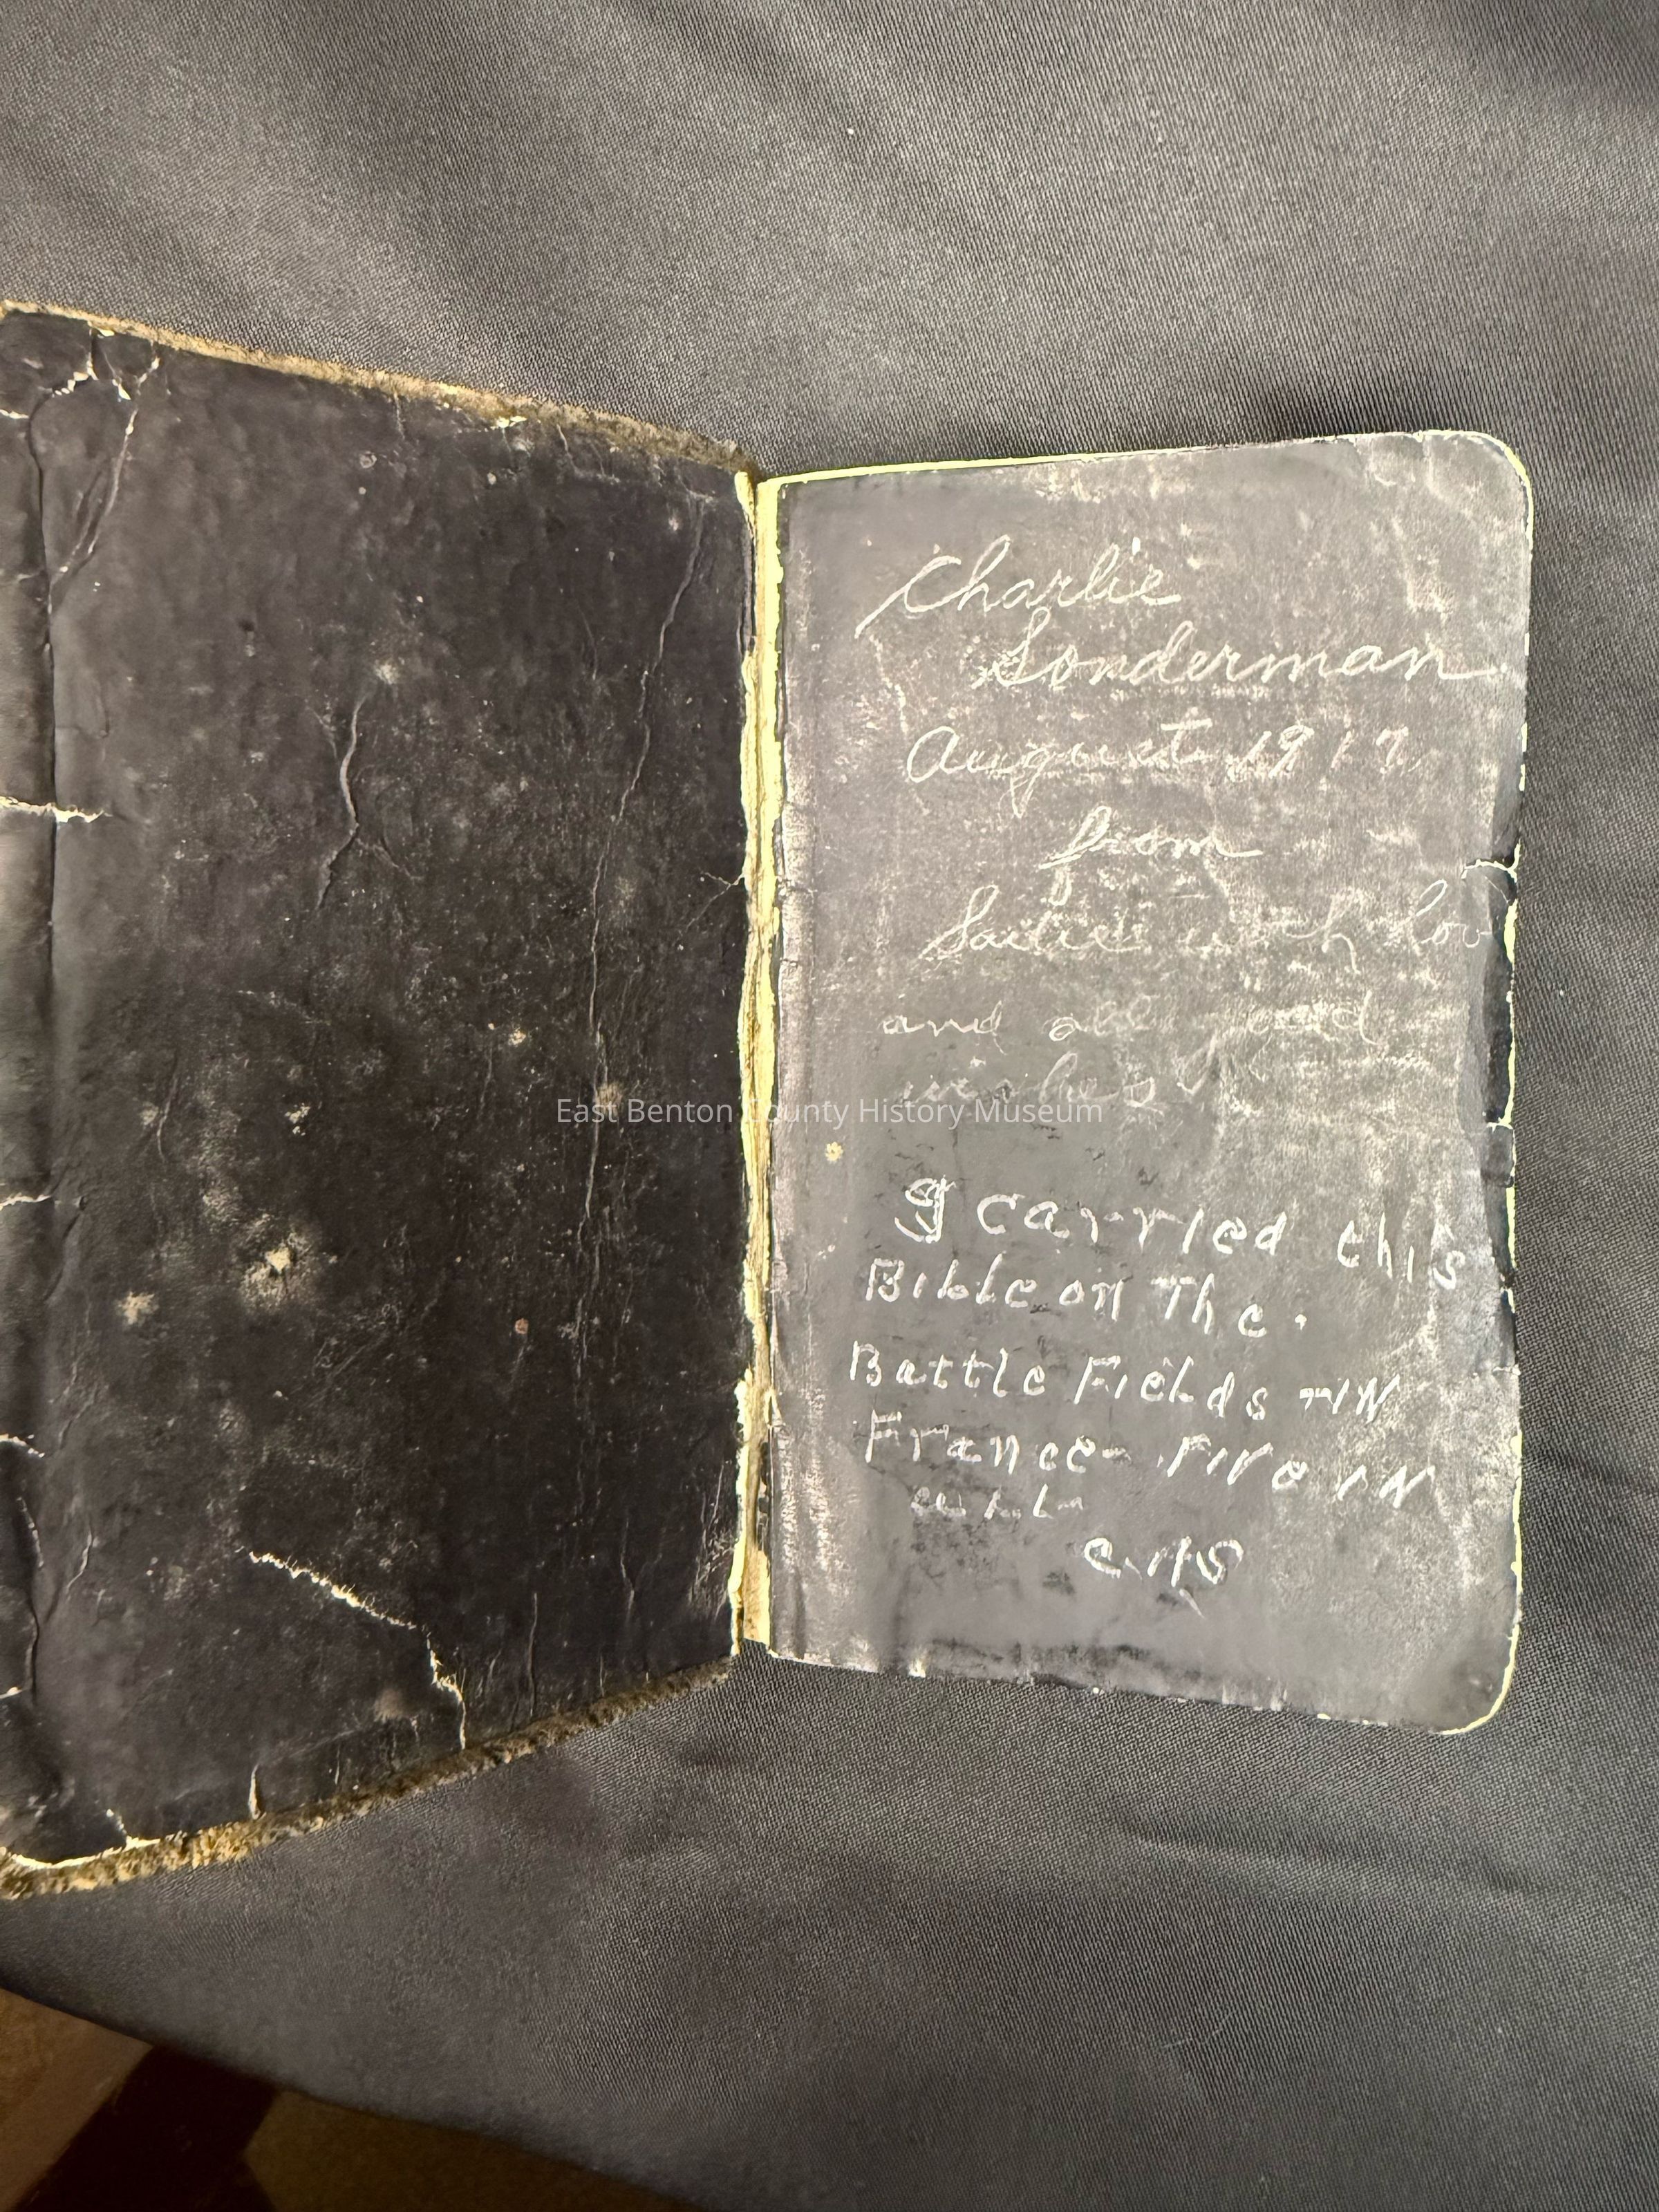 Charlie
Sonderman
August 1917
from
Sadie with lov
and all good
wishes
East Benton County History Museum
I carried this
Bible on The
Battle Fields IN
France IN